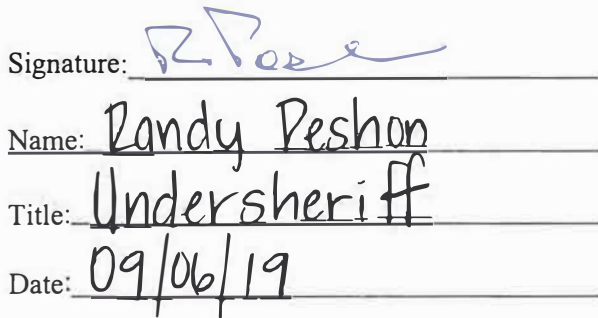 Signature:
Name: Randy Peshon
Title: Undersheriff
Date: 09/06/19